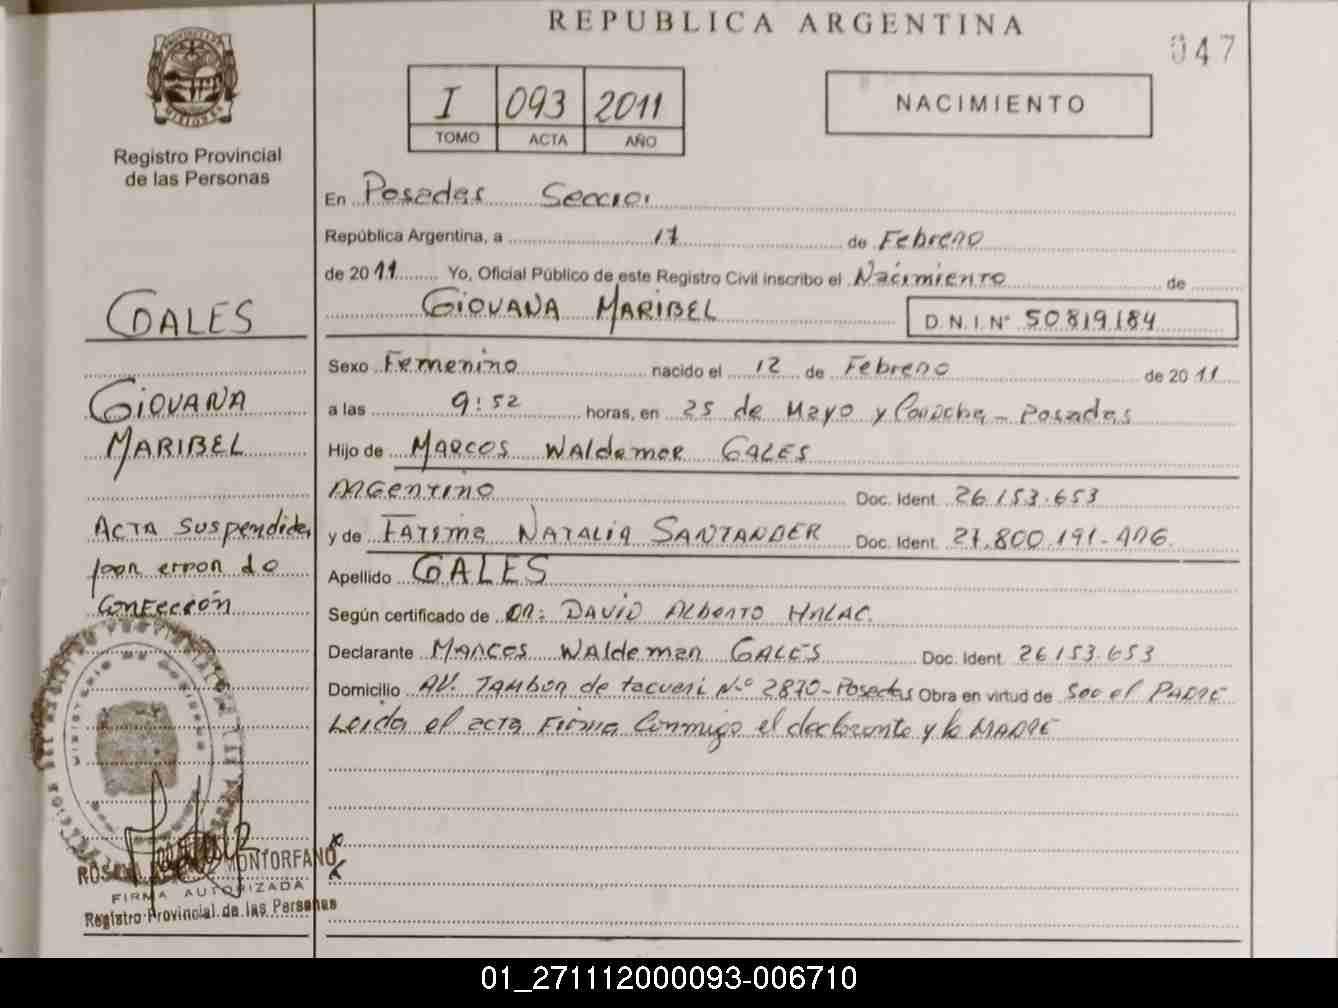 REPUBLICA ARGENTINA
047
PROVINCIA DE MISIONES
Registro Provincial
de las Personas
I 093 2011
TOMO ACTA AÑO
NACIMIENTO
En Posadas Seccio.
República Argentina, a 17 de Febrero
de 2011 Yo, Oficial Público de este Registro Civil inscribo el Nacimiento de
GIOVANA MARIBEL D.N.I.Nº 50819184
Sexo Femenino nacido el 12 de Febrero de 2011
a las 9:52 horas, en 25 de Mayo y - Posadas
Hijo de Marcos Waldemar GALES
Argentino Doc. Ident. 26.153.653
y de Fatima NATALIA SANTANDER Doc. Ident. 27.800.191-
Apellido GALES
Según certificado de DR: DAVID Alberto
Declarante Marcos Waldemar GALES Doc. Ident. 26153.653
Domicilio AV. Tambor de tacuari Nº 2870-Posadas Obra en virtud de Ser el PADRE
Leida el acta Firma Conmigo el declarante y la MADRE
GALES
GIOVANA
MARIBEL
ACTA Suspendida
por error de
Confección
MONTORFANO
FIRMA AUTORIZADA
Registro Provincial de las Personas
01_271112000093-006710